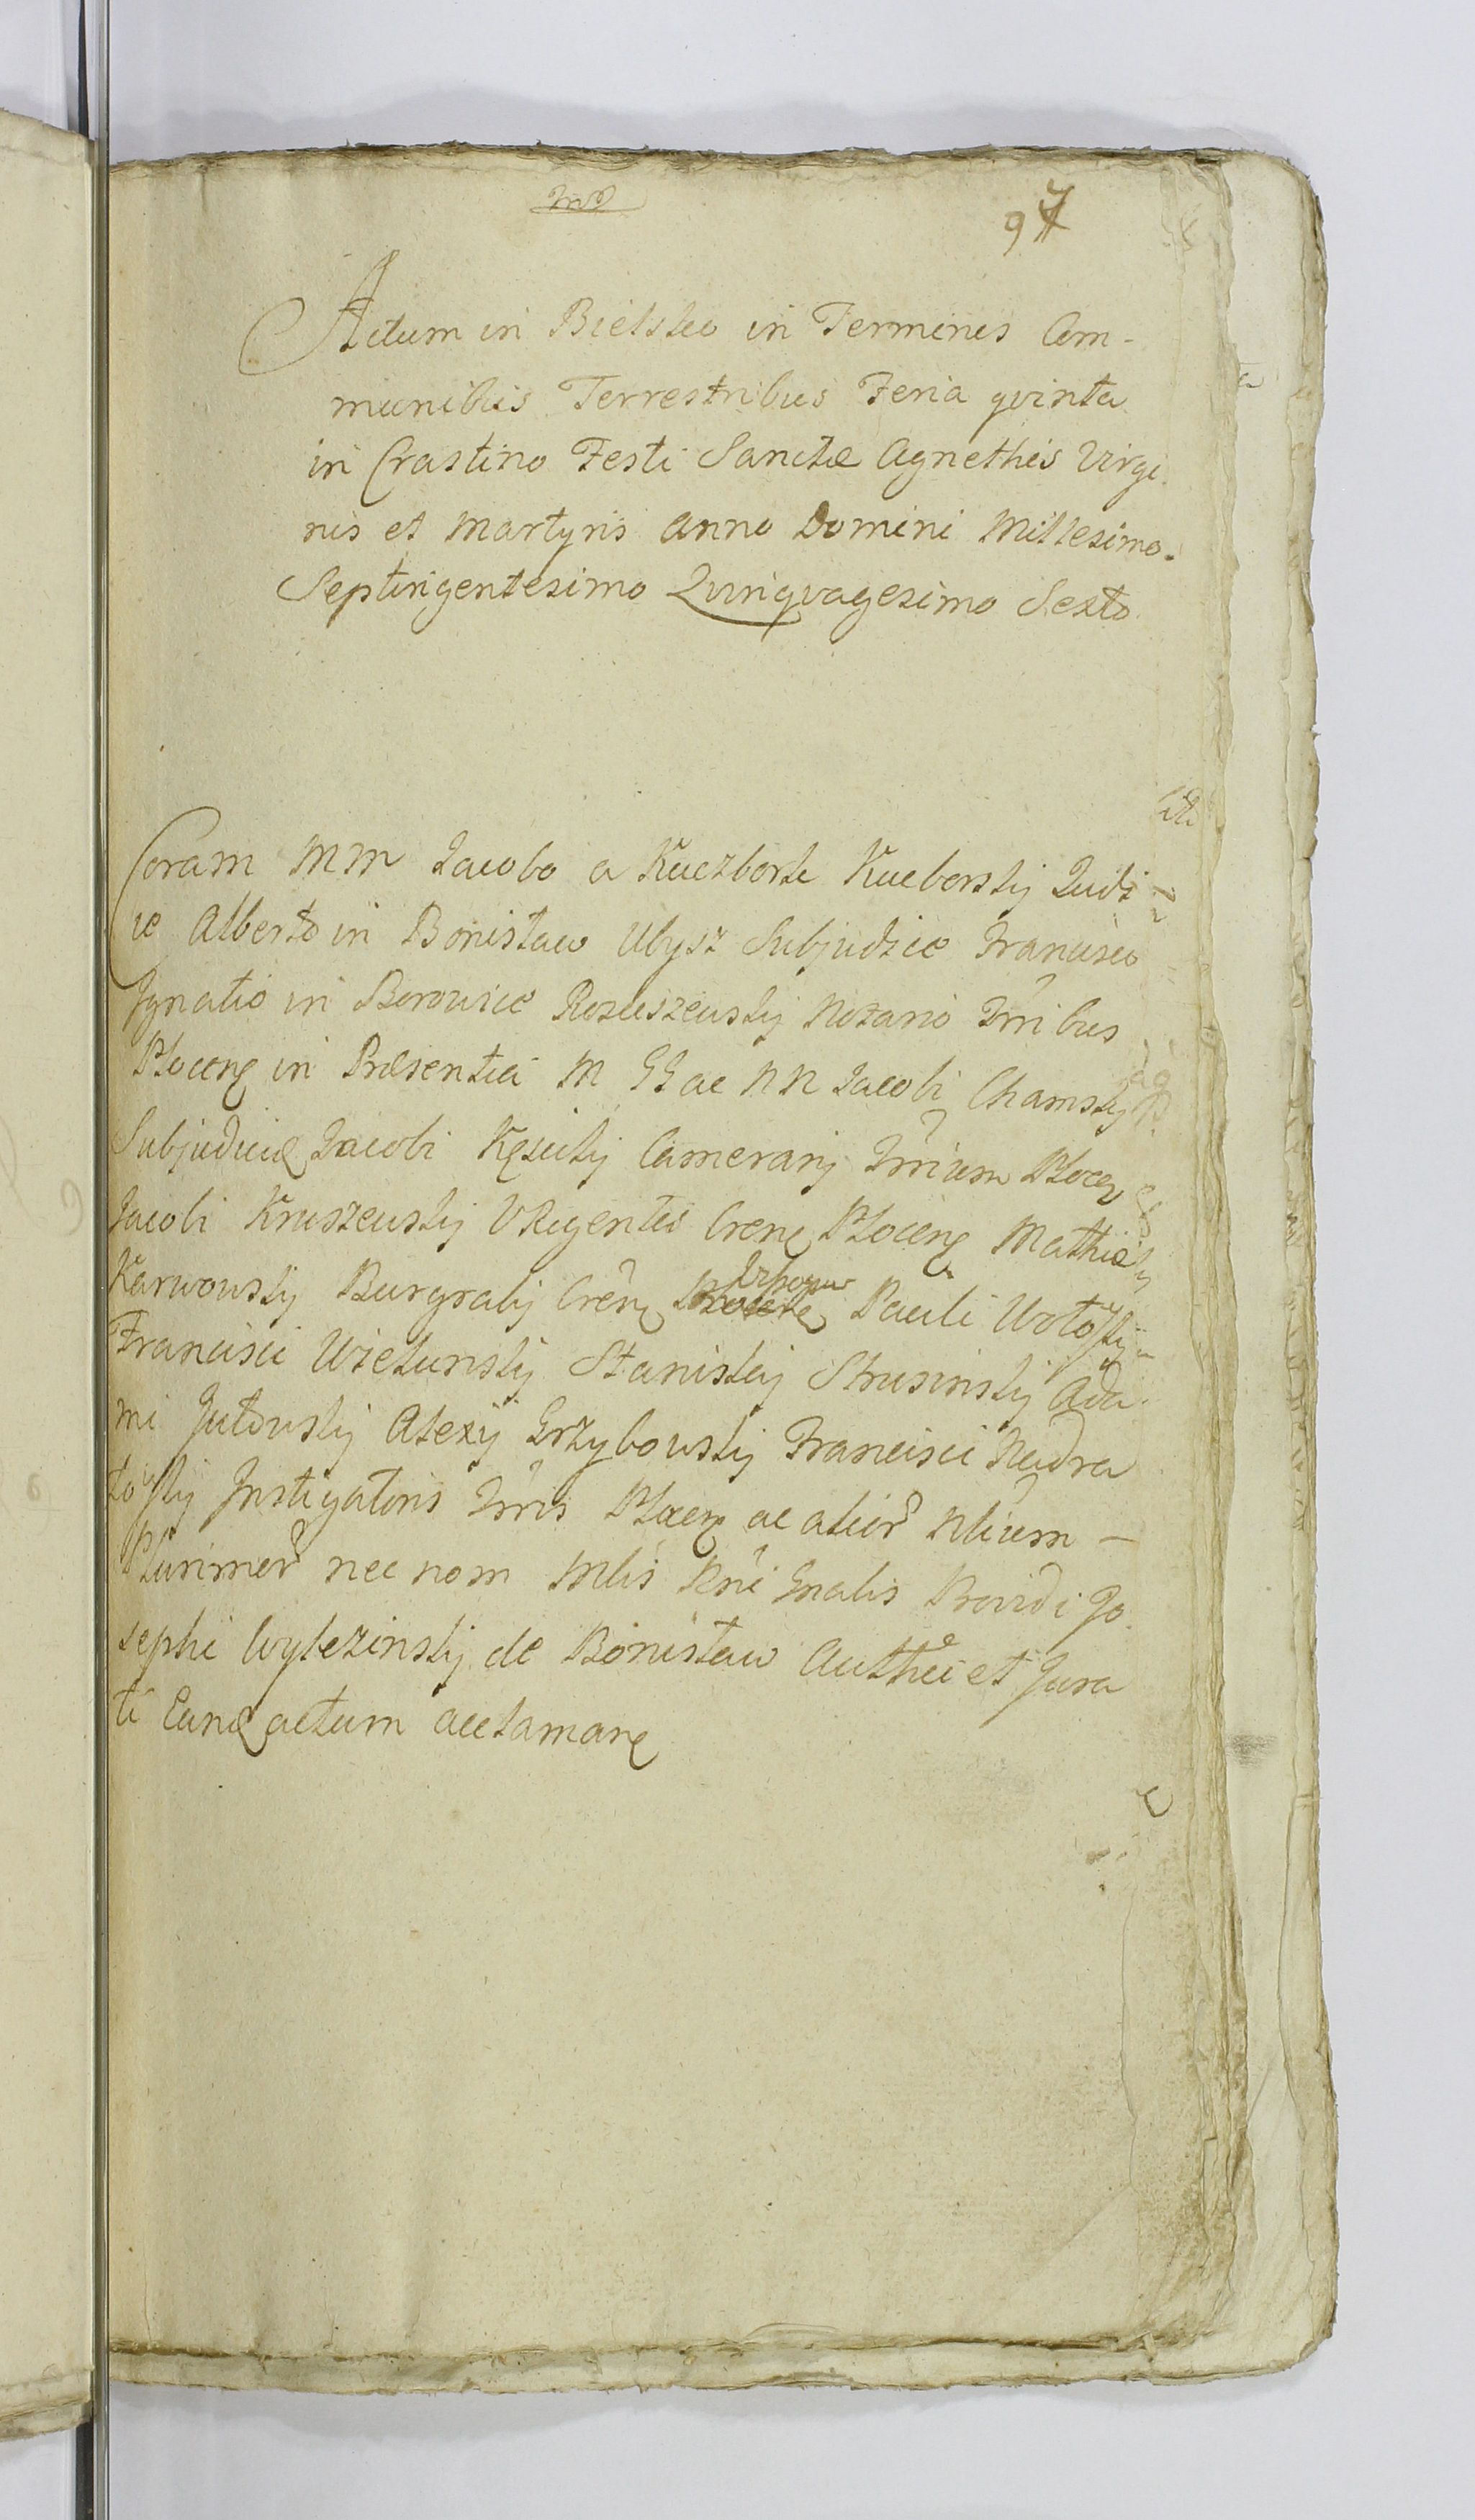 97
Actum in Bielsko in Terminis Com-
munibus Terrestribus Feria qvinta
in Crastino Festi Sanctæ Agnethis Virgi
nis et Martyris Anno Domini Millesimo
Septingentesimo Qvinqvagesimo Sexto
Coram MM Jacobo a Kuczbork Kuczborskij Judi
ce Alberto in Bonisław Ubysz Subjudice Francisco
Ignatio in Borowice Rosciszewskij Notario Trribus
Płocen in Præsentia M GG ac NN Jacobi Chamskij
Subjudicis Jacobi Kęsickij Camerarij Trrium Płocen
Jacobi Kruszewskij VRegentis Cren Płocen Mathiæ
Karwowskij Burgrabij Cren Pauli Wołowskij
Francisci Wielunskij Stanislaij Strusinskij Ada
mi Gutowskij Alexij Grzybowskij Francisci Nadra
towskij Instigatoris Trris Płocen ac alior Nlium —
Plurimor nec nom Mlis Rni Gnalis Providi Jo
sephi Wylezinskij de Bonisław Authci et Jura
ti Eund actum acclaman